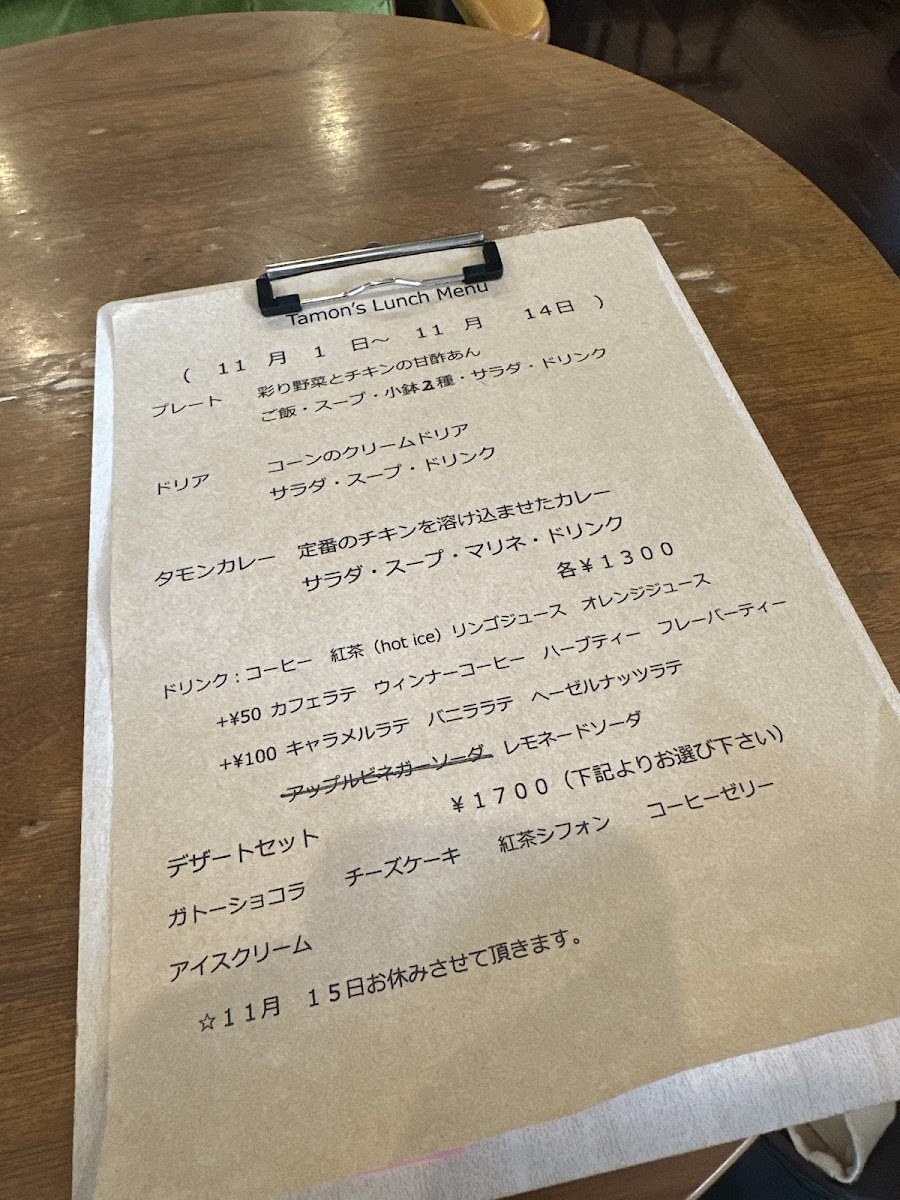 Tamon's Lunch Menu
( 11 月 1 日～ 11 月 14日 )
プレート 彩り野菜とチキンの甘酢あん
ご飯・スープ・小鉢2種・サラダ・ドリンク
ドリア コーンのクリームドリア
サラダ・スープ・ドリンク
タモンカレー 定番のチキンを溶け込ませたカレー
サラダ・スープ・マリネ・ドリンク
各￥１３００
ドリンク：コーヒー 紅茶（hot ice）リンゴジュース オレンジジュース
+¥50 カフェラテ ウィンナーコーヒー ハーブティー フレーバーティー
+¥100 キャラメルラテ バニララテ ヘーゼルナッツラテ
アップルビネガーソーダ レモネードソーダ
デザートセット ￥１７００（下記よりお選び下さい）
ガトーショコラ チーズケーキ 紅茶シフォン コーヒーゼリー
アイスクリーム
☆１１月 １５日お休みさせて頂きます。